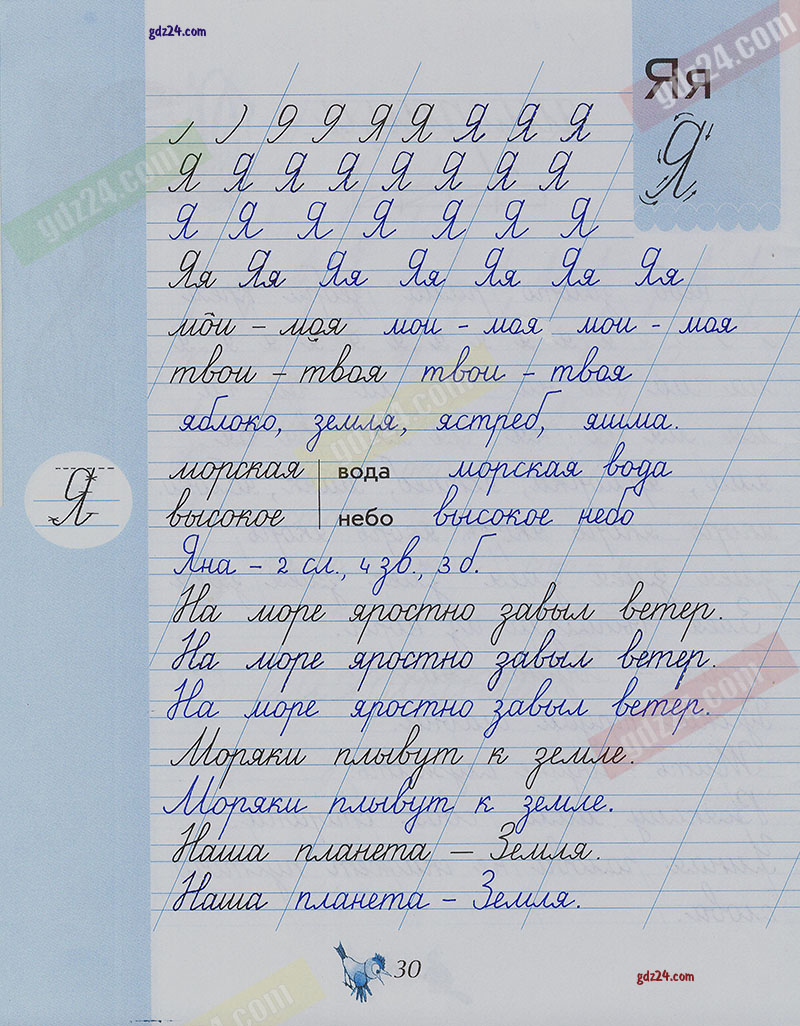 gdz24.com
Яя
gdz24.com
Я
, ) Я Я Я Я Я Я Я
Я Я Я Я Я Я Я Я
gdz24.com
Я Я Я Я Я Я Я
Яя Яя Яя Яя Яя Яя Яя
мои – моя мои - моя мои - моя
твои – твоя твои - твоя
gdz24.com
яблоко, земля, ястреб, яшма.
морская вода морская вода
Я
высокое небо высокое небо
Яна – 2 сл., 4 зв., 3 б.
На море яростно завыл ветер.
На море яростно завыл ветер.
На море яростно завыл ветер.
gdz24.com
Моряки плывут к земле.
Моряки плывут к земле.
Наша планета – Земля.
Наша планета - Земля.
30
gdz24.com
gdz24.com